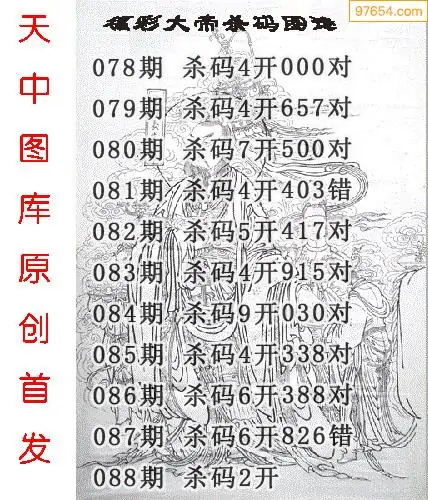 97654.com
福彩大帝杀码图谜
078期 杀码4开000对
079期 杀码4开657对
080期 杀码7开500对
081期 杀码4开403错
082期 杀码5开417对
083期 杀码4开915对
084期 杀码9开030对
085期 杀码4开338对
086期 杀码6开388对
087期 杀码6开826错
088期 杀码2开
天中图库原创首发